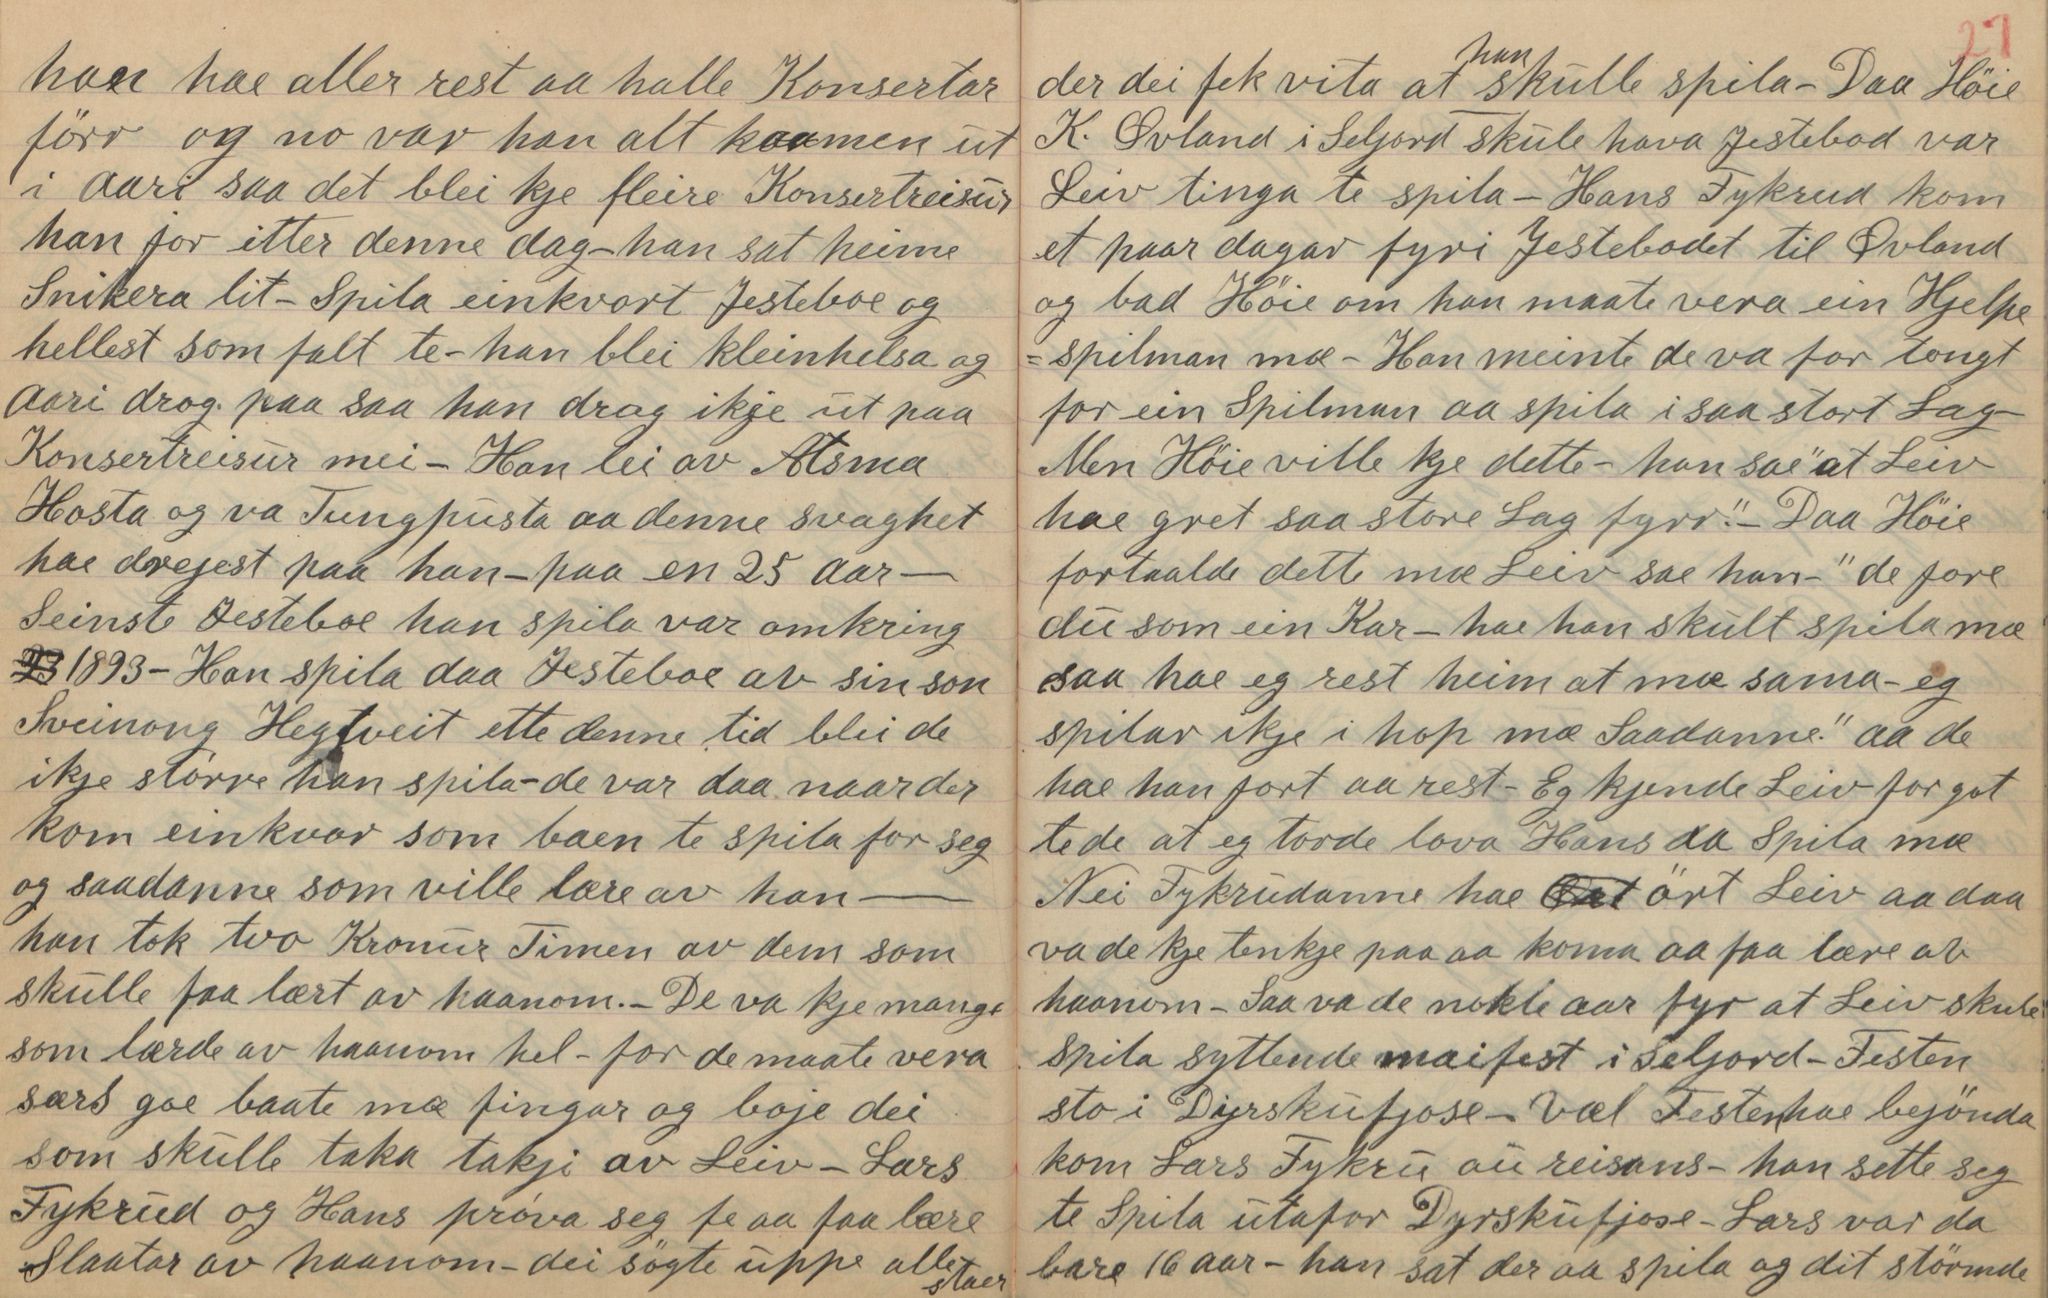 han hae aller rest aa halle Konsertar
förr og no var han alt kaamen ut
i aari saa det blei kje fleire Konsertreisur
han for itter denne dag – han sat heime
Snikera lit – Spila einkvort Jesteboe og
hellest som falt te – han blei kleinhelsa og
aari drog paa saa han drog ikje ut paa
Konsertreisur mei – Han lei av Atsma
Hosta og va Tungpusta aa denne svaghet
hae drejest paa han – paa en 25 aar —
Seinste Jesteboe han spila var omkring
1893 – Han spila daa Jesteboe av sin son
Sveinong Hegtveit ette denne tid blei de
ikje större han spila – de var daa naar der
kom einkvar som baen te spila for seg
og saadanne som ville lære av han —
han tok tvo Kronur Timen av dem som
skulle faa lært av haanom. – De va kje mange
som lærde av haanom hel – for de maate vera
særs goe baate mæ fingar og boje dei
som skulle taka takji av Leiv – Lars
Fykrud og Hans pröva seg fe aa faa lære
Slaatar av haanom – dei sögte uppe alle
staer
27
der dei fek vita at han skulle spila – Daa Höie
K. Øvland i Seljord skule hava Jestebod var
Leiv tinga te spila – Hans Fykrud kom
et paar dagar fyri Jestebodet til Øvland
og bad Höie om han maate vera ein Hjelpe
=spilman mæ – Han meinte de va for tongt
for ein Spilman aa spila i saa stort Lag –
Men Höie ville kje dette – han sae "at Leiv
hae gret saa store Lag fyrr." – Daa Höie
fortaalde dette mæ Leiv sae han – "de fore
du som ein Kar – hae han skult spila mæ
saa hae eg rest heim at mæ sama – eg
spilar ikje i hop mæ Saadanne." aa de
hae han fort aa rest – Eg kjende Leiv for got
te de at eg torde lova Hans aa Spila mæ
Nei Fykrudanne hae ört Leiv aa daa
va de kje tenkje paa aa koma aa faa lære av
haanom – Saa va de nokle aar fyr at Leiv skule
Spila syttende maifest i Seljord – Festen
sto i Dyrskufjose – Væl Festen hae bejönda
kom Lars Fykru au reisans – han sette seg
te Spila utafor Dyrskufjose – Lars var da
bare 16 aar – han sat der aa spila og dit störmde